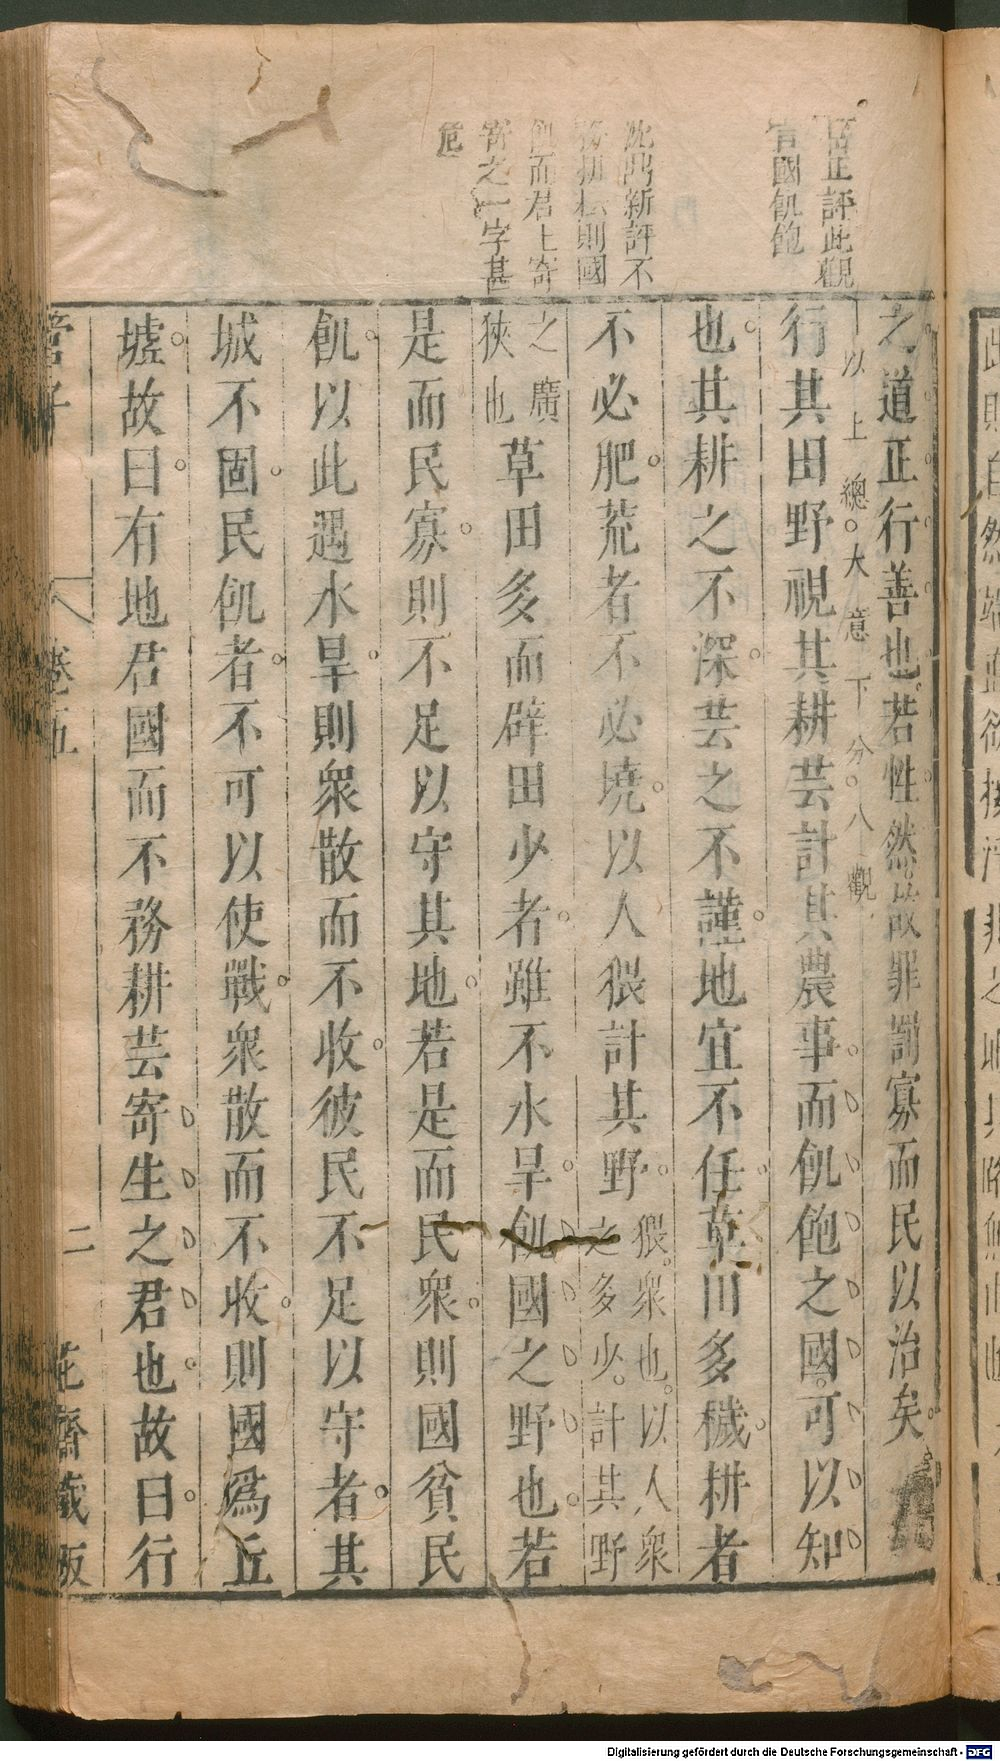 正評此觀
國飢飽
新評不
則國
飢而君上寄
寄之一字甚
危
之道正行善也若性然故罪罰寡而民以治矣
以上總大意下分八觀
行其田野視其耕芸計其農事而飢飽之國可以知
也其耕之不深芸之不謹地宜不任草田多穢耕者
不必肥荒者不必墝以人猥計其野猥衆也以人衆
之多少計其野
之廣
狹也草田多而辟田少者雖不水旱飢國之野也若
是而民寡則不足以守其地若是而民衆則國貧民
飢以此遇水旱則衆散而不收彼民不足以守者其
城不固民飢者不可以使戰衆散而不收則國爲丘
墟故曰有地君國而不務耕芸寄生之君也故曰行
管子 卷五 二 花齋藏板
Digitalisierung gefördert durch die Deutsche Forschungsgemeinschaft - DFG